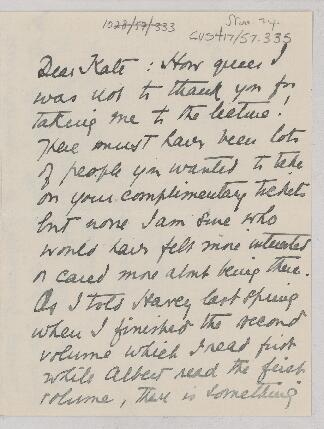 1928/57/333
CUSH17/57-335
Dear Kate: How queer I
was not to thank you for
taking me to the lecture!
There must have been lots
of people you wanted to take
on your complimentary tickets
but none I am sure who
would have felt more interested
or cared more about being there.
As I told Harvey last spring
when I finished the second
volume which I read first
while Albert read the first
volume, there is something